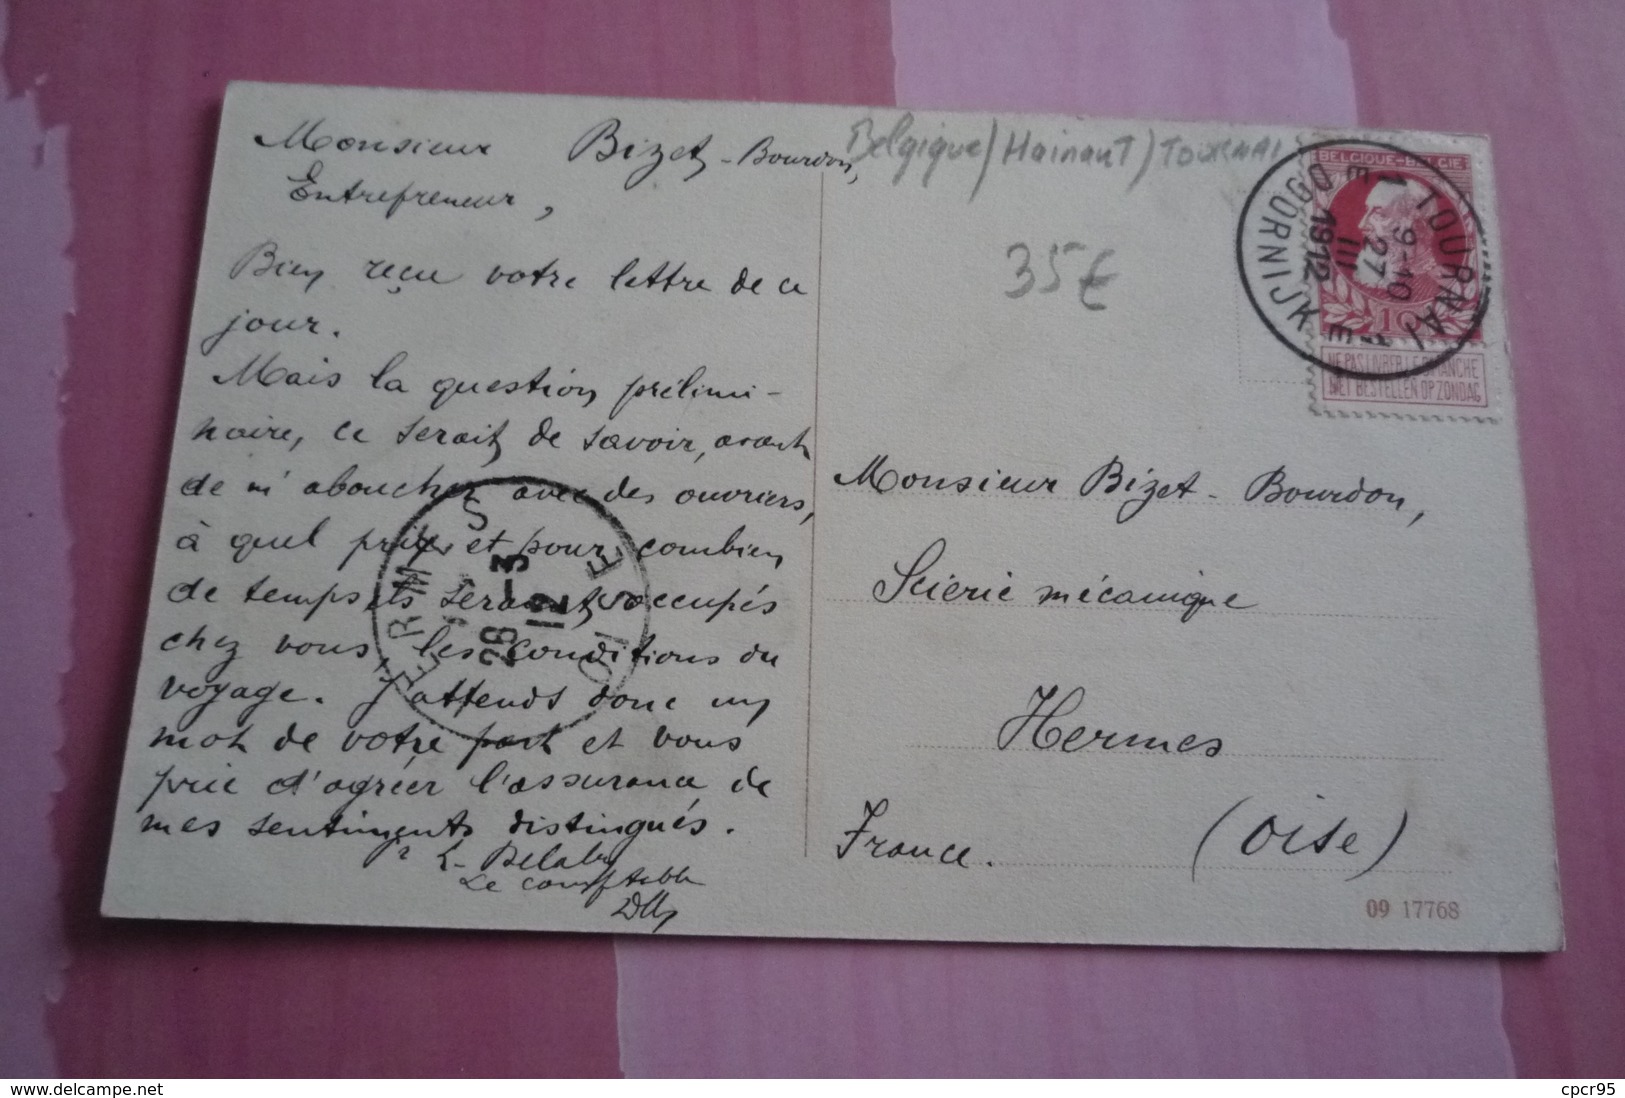 Monsieur Bizet-Bourdon,
Entrepreneur,
Bien reçu votre lettre de ce
jour.
Mais la question prélimi-
naire, ce serait de savoir, avant
de m'aboucher avec des ouvriers,
à quel prix et pour combien
de temps ils seraient occupés
chez vous, les conditions du
voyage. J'attends donc un
mot de votre part et vous
prie d'agréer l'assurance de
mes sentiments distingués.
Le comptable
HERMES
28-3
12
OISE
Belgique/Hainaut/TOURNAI
35€
BELGIQUE-BELGIË
10
NE PAS LIVRER LE DIMANCHE
NIET BESTELLEN OP ZONDAG
1 TOURNAI 1
9-10
27
III
1912
E DOORNIJK E
Monsieur Bizet-Bourdon,
Scierie mécanique
Hermes
(Oise)
France.
09 17768
www.delcampe.net
cpcr95